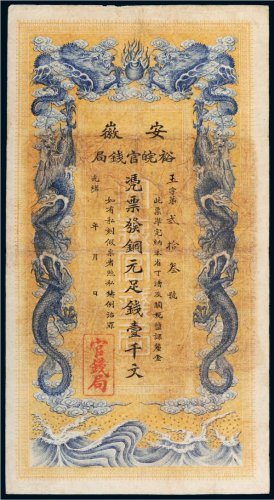 安徽
裕皖官錢局
玉字第貳拾叁號
此票准完納本省丁漕及關稅鹽課釐金
憑票發銅元足錢壹千文
如有私刻假票者照私鑄例治罪
光緒 年 月 日
官錢局